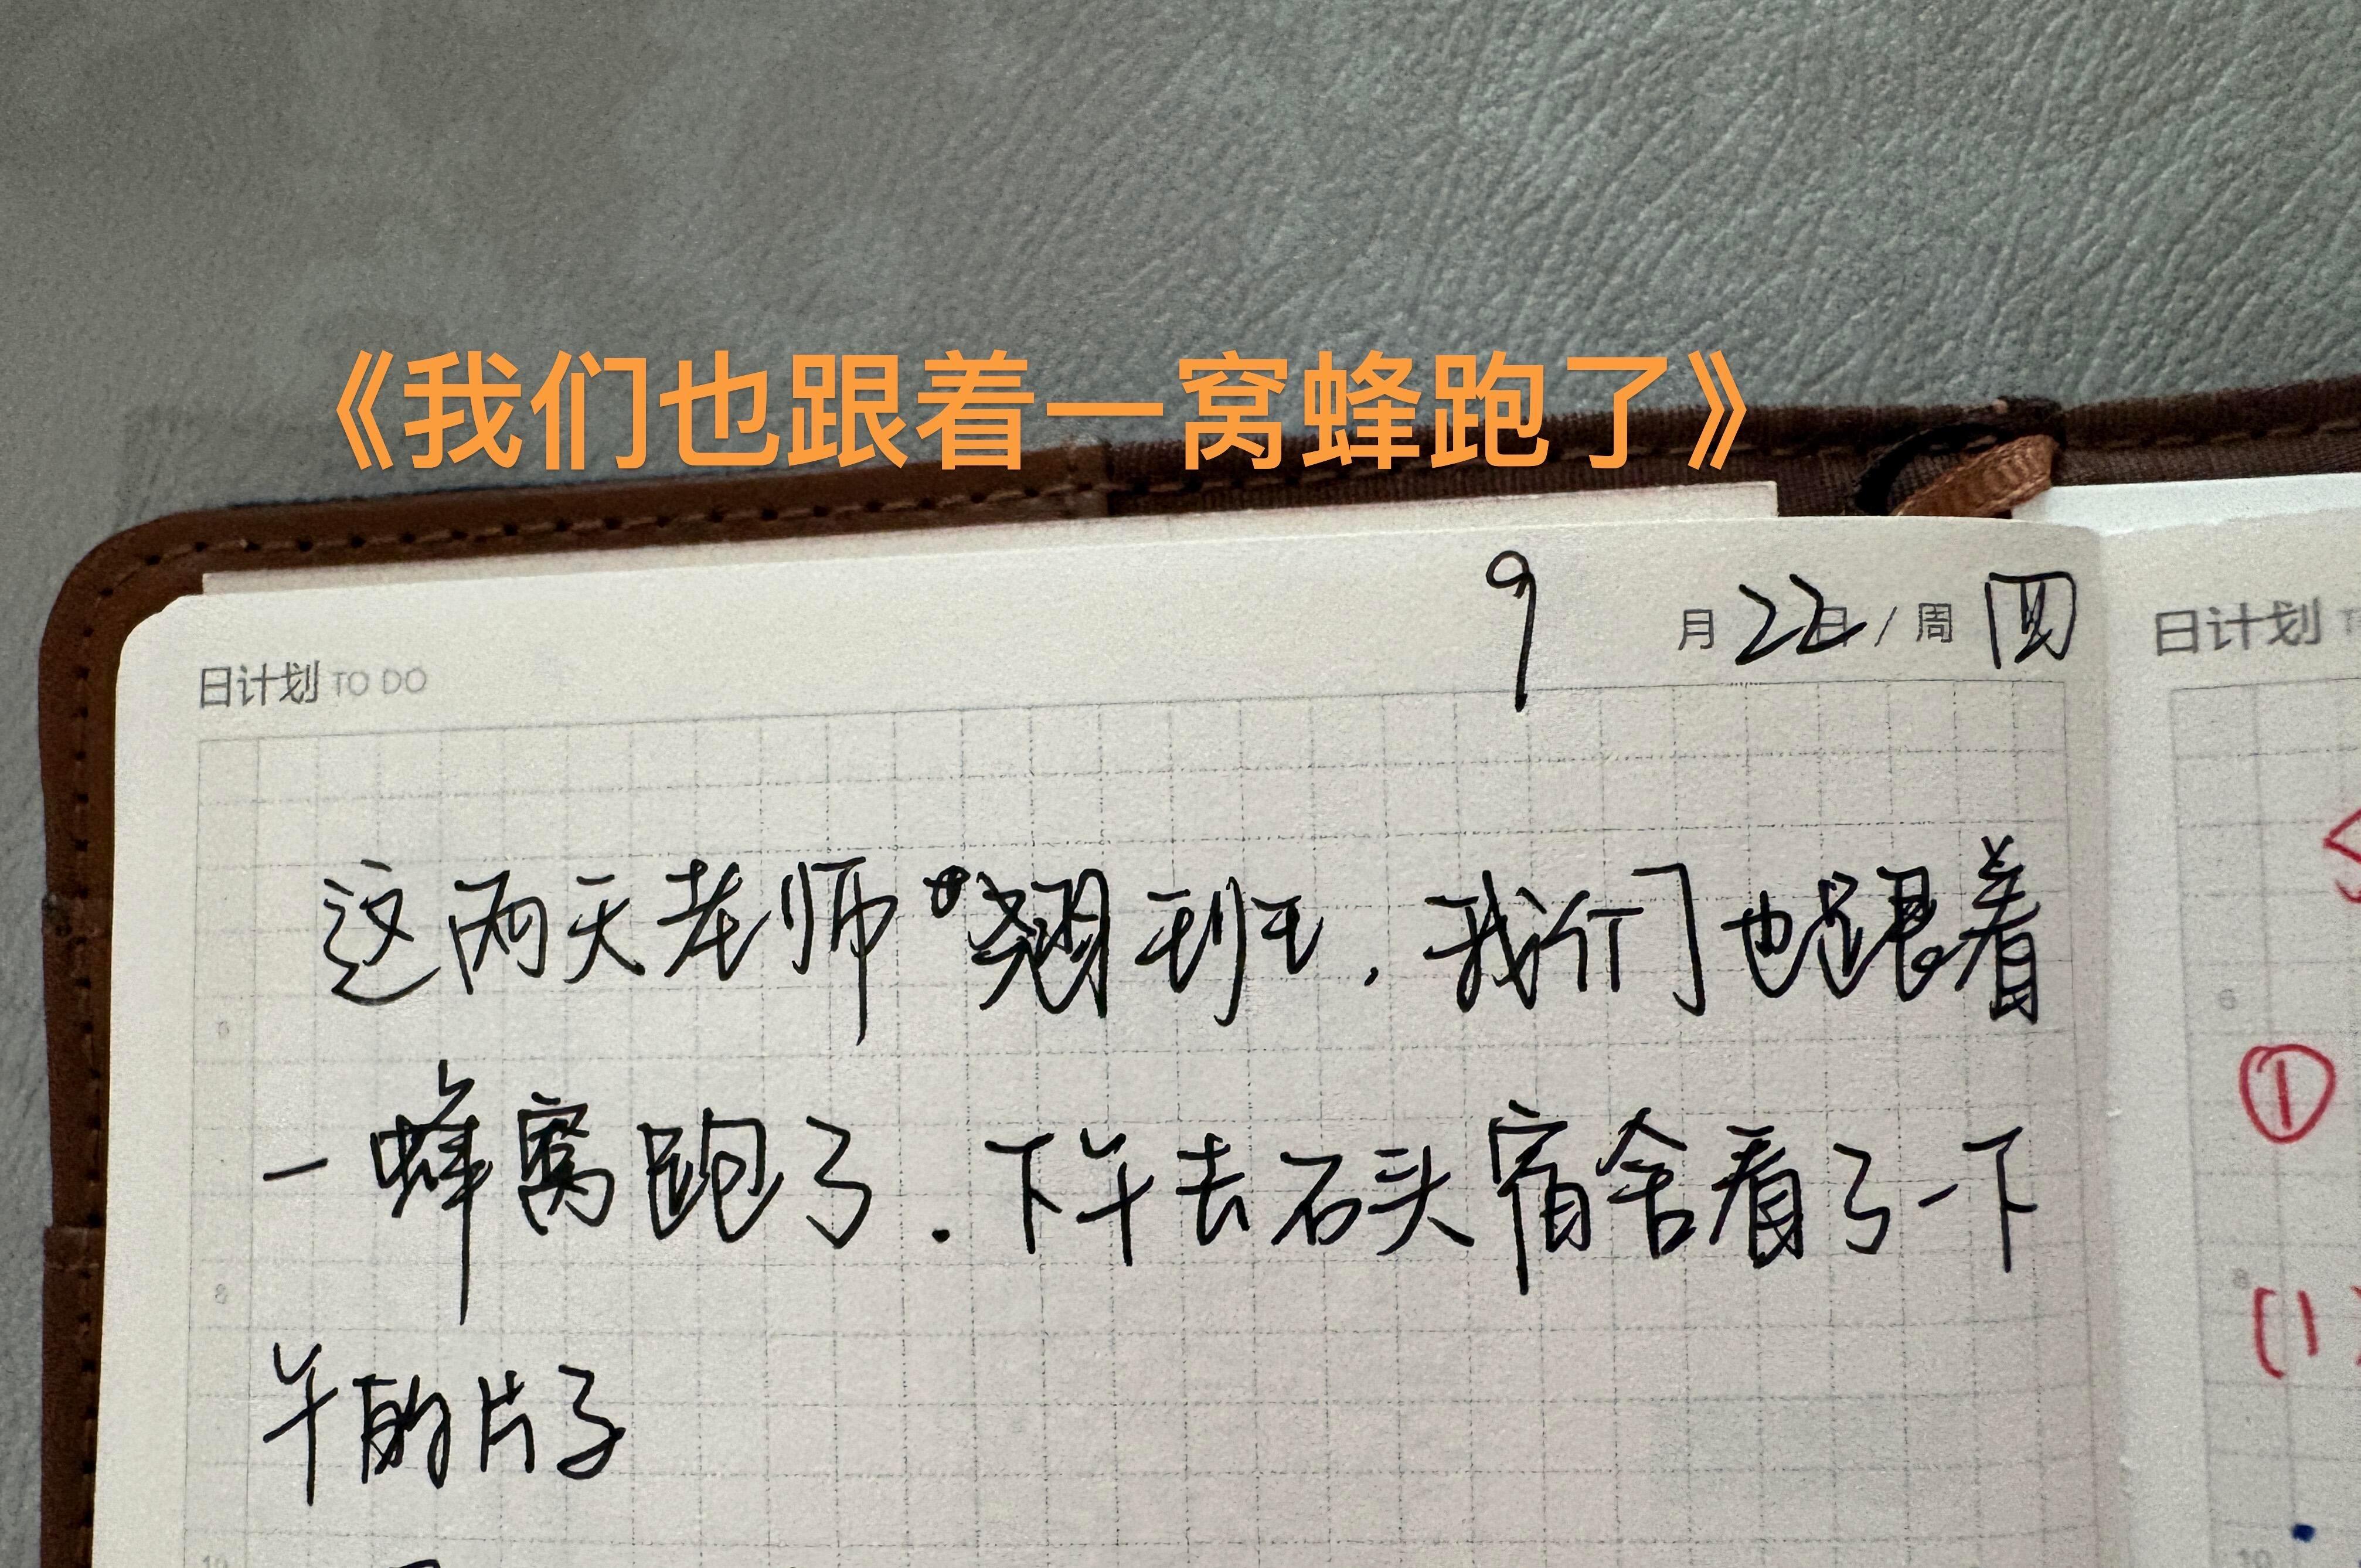 《我们也跟着一窝蜂跑了》
9月22日/周四
日计划 TO DO
日计划
这两天老师翘班,我们也跟着
一蜂窝跑了.下午去石头宿舍看了一下
午的片子
6
8
8
10
10
①
(1